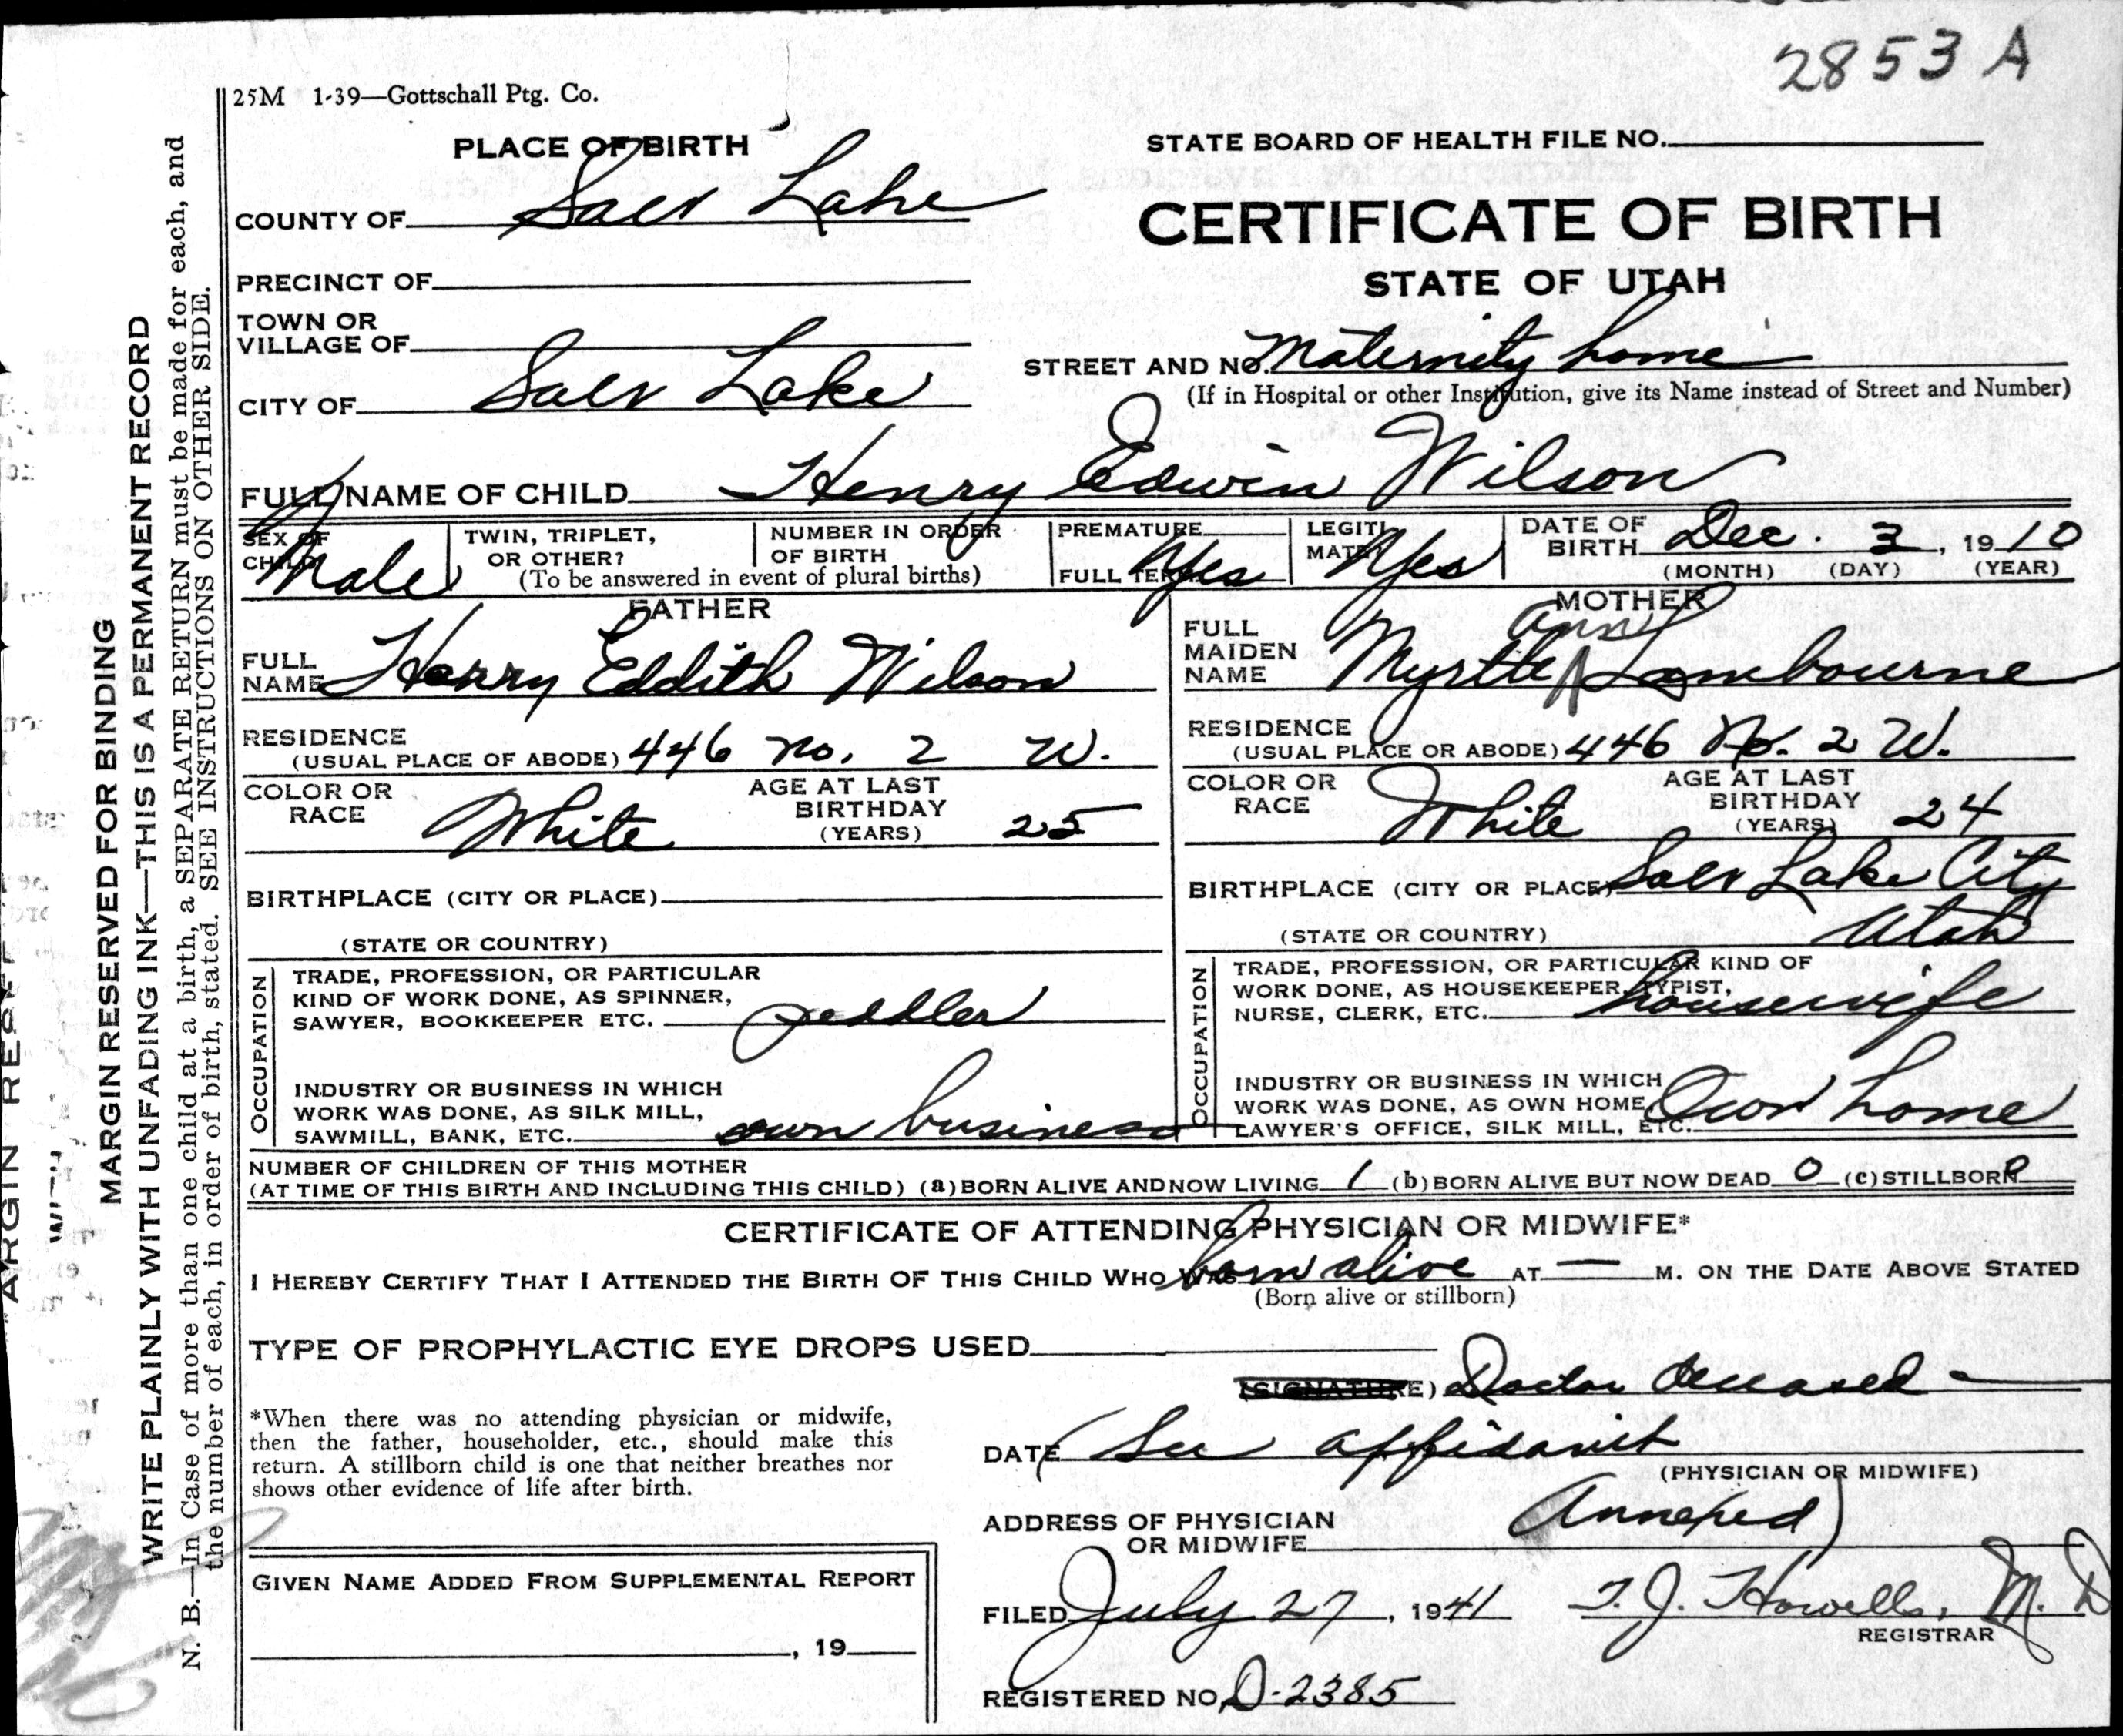 2853 A
25M 1-39—Gottschall Ptg. Co.
PLACE OF BIRTH
STATE BOARD OF HEALTH FILE NO.
COUNTY OF Salt Lake
CERTIFICATE OF BIRTH
PRECINCT OF
STATE OF UTAH
TOWN OR
VILLAGE OF
STREET AND NO. Maternity home
(If in Hospital or other Institution, give its Name instead of Street and Number)
CITY OF Salt Lake
FULL NAME OF CHILD Henry Edwin Wilson
SEX OF CHILD Male
TWIN, TRIPLET,
OR OTHER?
NUMBER IN ORDER
OF BIRTH
(To be answered in event of plural births)
PREMATURE
FULL TERM Yes
LEGITI-
MATE? Yes
DATE OF
BIRTH Dec. 3, 1910
(MONTH) (DAY) (YEAR)
FATHER
FULL
NAME Henry Eddith Wilson
RESIDENCE
(USUAL PLACE OF ABODE) 446 No. 2 W.
COLOR OR
RACE White
AGE AT LAST
BIRTHDAY
(YEARS) 25
BIRTHPLACE (CITY OR PLACE)
(STATE OR COUNTRY)
OCCUPATION
TRADE, PROFESSION, OR PARTICULAR
KIND OF WORK DONE, AS SPINNER,
SAWYER, BOOKKEEPER ETC. peddler
INDUSTRY OR BUSINESS IN WHICH
WORK WAS DONE, AS SILK MILL,
SAWMILL, BANK, ETC. own business
MOTHER
FULL
MAIDEN
NAME Myrtle Ann Lambourne
RESIDENCE
(USUAL PLACE OR ABODE) 446 No. 2 W.
COLOR OR
RACE White
AGE AT LAST
BIRTHDAY
(YEARS) 24
BIRTHPLACE (CITY OR PLACE) Salt Lake City
(STATE OR COUNTRY) Utah
OCCUPATION
TRADE, PROFESSION, OR PARTICULAR KIND OF
WORK DONE, AS HOUSEKEEPER, TYPIST,
NURSE, CLERK, ETC. housewife
INDUSTRY OR BUSINESS IN WHICH
WORK WAS DONE, AS OWN HOME,
LAWYER'S OFFICE, SILK MILL, ETC. Own home
NUMBER OF CHILDREN OF THIS MOTHER
(AT TIME OF THIS BIRTH AND INCLUDING THIS CHILD) (a) BORN ALIVE AND NOW LIVING 1 (b) BORN ALIVE BUT NOW DEAD 0 (c) STILLBORN 0
CERTIFICATE OF ATTENDING PHYSICIAN OR MIDWIFE*
I HEREBY CERTIFY THAT I ATTENDED THE BIRTH OF THIS CHILD WHO WAS born alive AT — M. ON THE DATE ABOVE STATED
(Born alive or stillborn)
TYPE OF PROPHYLACTIC EYE DROPS USED
(SIGNATURE) Doctor deceased —
*When there was no attending physician or midwife,
then the father, householder, etc., should make this
return. A stillborn child is one that neither breathes nor
shows other evidence of life after birth.
DATE (See affidavit
(PHYSICIAN OR MIDWIFE)
ADDRESS OF PHYSICIAN
OR MIDWIFE Annexed)
GIVEN NAME ADDED FROM SUPPLEMENTAL REPORT
, 19
FILED July 27, 1941 T. J. Howells, M. D
REGISTRAR
REGISTERED NO. D-2385
MARGIN RESERVED FOR BINDING
WRITE PLAINLY WITH UNFADING INK—THIS IS A PERMANENT RECORD
N. B.—In Case of more than one child at a birth, a SEPARATE RETURN must be made for each, and
the number of each, in order of birth, stated. SEE INSTRUCTIONS ON OTHER SIDE.